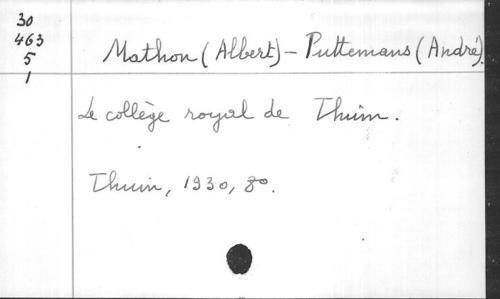 30
463
5
1
Mathon (Albert) – Puttemans (André).
Le collège royal de Thuin.
Thuin, 1930, 8o.